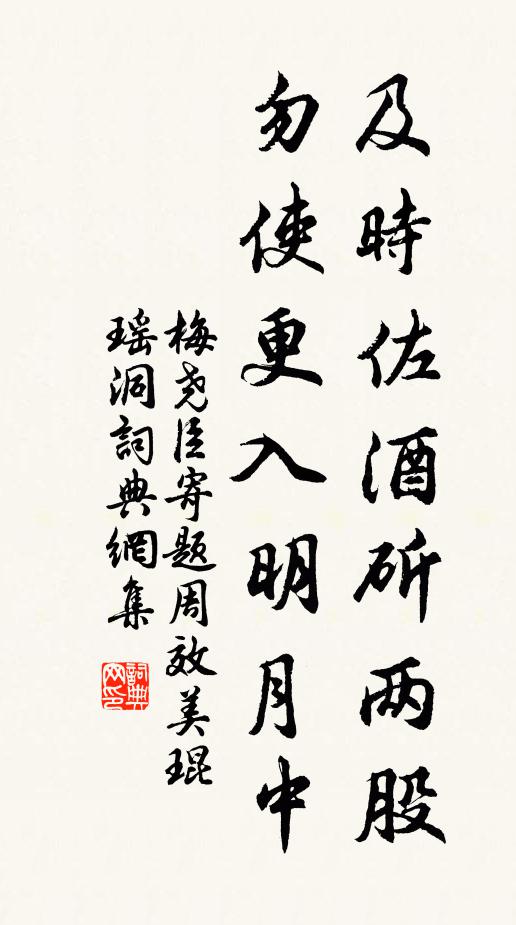 及時佐酒斫两股
勿使更入明月中
梅尧臣寄题周效美琨
瑶洞詞典網集
詞典网印